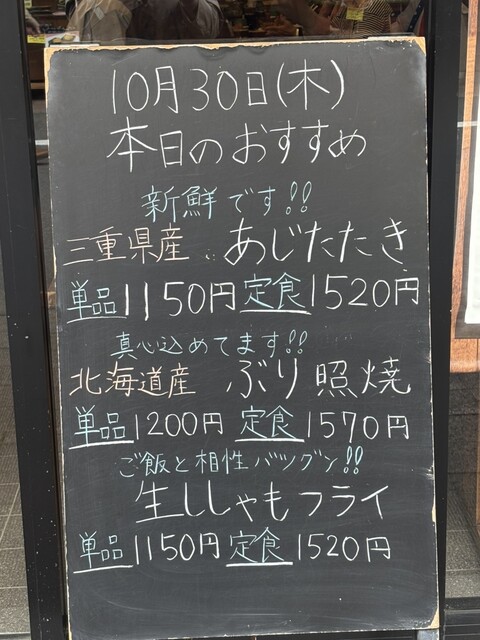 10月30日(木)
本日のおすすめ
新鮮です!!
三重県産 あじたたき
単品1150円 定食1520円
真心込めてます!!
北海道産 ぶり照焼
単品1200円 定食1570円
ご飯と相性バツグン!!
生ししゃもフライ
単品1150円 定食1520円